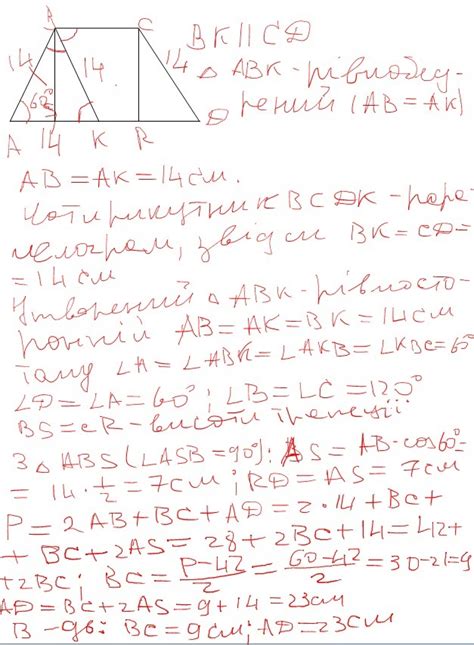 B C
BK || CD
14 14 14
△ ABK - рівнобед-
рений (AB = AK)
60°
A 14 K R D
AB = AK = 14 см.
Чотирикутник BCDK - пара-
лелограм, звідси BK = CD =
= 14 см
Утворений △ ABK - рівносто-
ронній AB = AK = BK = 14 см
Тому ∠A = ∠ABK = ∠AKB = ∠KBC = 60°
∠D = ∠A = 60°; ∠B = ∠C = 120°
BS = CR - висоти трапеції
З △ ABS (∠ASB = 90°): AS = AB·cos60° =
= 14·1/2 = 7 см; RD = AS = 7 см
P = 2AB + BC + AD = 2·14 + BC +
+ BC + 2AS = 28 + 2BC + 14 = 42 +
+ 2BC; BC = (P-42)/2 = (60-42)/2 = 30-21 = 9
AD = BC + 2AS = 9 + 14 = 23 см
В-дь: BC = 9 см; AD = 23 см